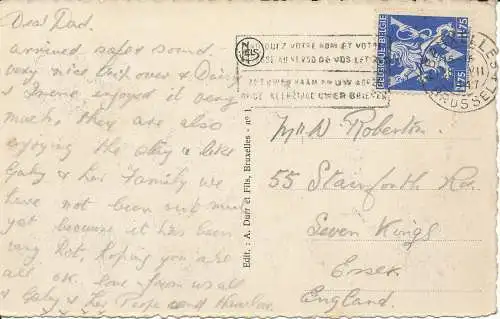 Dear Dad.
arrived safe & sound —
very nice trip over &
& Irene enjoyed it very
much, they are also
enjoying the stay & like
Gaby & her family we
have not been out much
yet because it has been
very hot, hoping you are
all O.K. love from us all
& Gaby & her People and
INDIQUEZ VOTRE NOM ET VOTRE
AU VERSO DE VOS LET
NAAM EN UW ADRES
KEERZIJDE UWER BRIEVEN
BELGIQUE BELGIE
1F75
BRUSSEL
Edit. : A. Durr et Fils, Bruxelles - n° 1
Mr W Roberton.
55 Stainforth Rd.
Seven Kings
Essex
England.